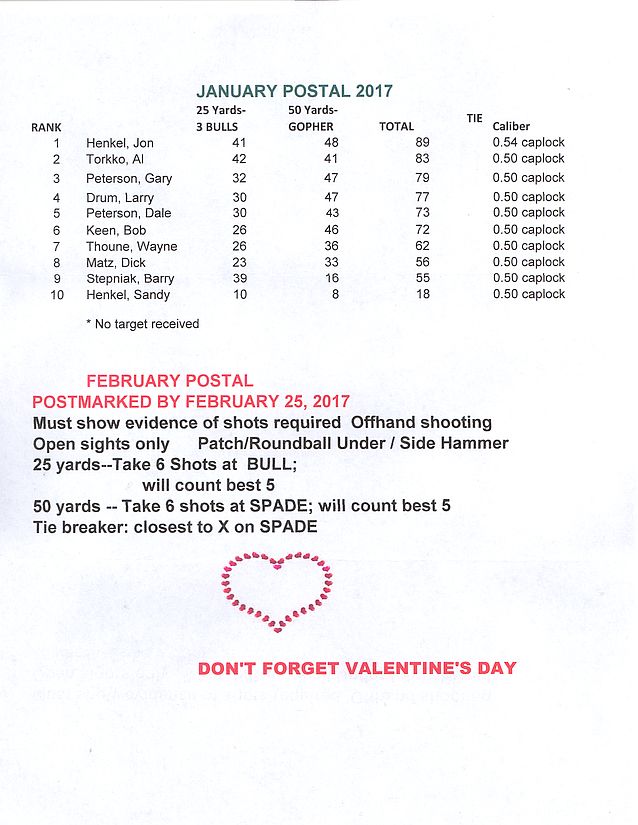 JANUARY POSTAL 2017
25 Yards- 50 Yards- TIE
RANK 3 BULLS GOPHER TOTAL Caliber
1 Henkel, Jon 41 48 89 0.54 caplock
2 Torkko, Al 42 41 83 0.50 caplock
3 Peterson, Gary 32 47 79 0.50 caplock
4 Drum, Larry 30 47 77 0.50 caplock
5 Peterson, Dale 30 43 73 0.50 caplock
6 Keen, Bob 26 46 72 0.50 caplock
7 Thoune, Wayne 26 36 62 0.50 caplock
8 Matz, Dick 23 33 56 0.50 caplock
9 Stepniak, Barry 39 16 55 0.50 caplock
10 Henkel, Sandy 10 8 18 0.50 caplock
* No target received
FEBRUARY POSTAL
POSTMARKED BY FEBRUARY 25, 2017
Must show evidence of shots required Offhand shooting
Open sights only Patch/Roundball Under / Side Hammer
25 yards--Take 6 Shots at BULL;
will count best 5
50 yards -- Take 6 shots at SPADE; will count best 5
Tie breaker: closest to X on SPADE
DON'T FORGET VALENTINE'S DAY